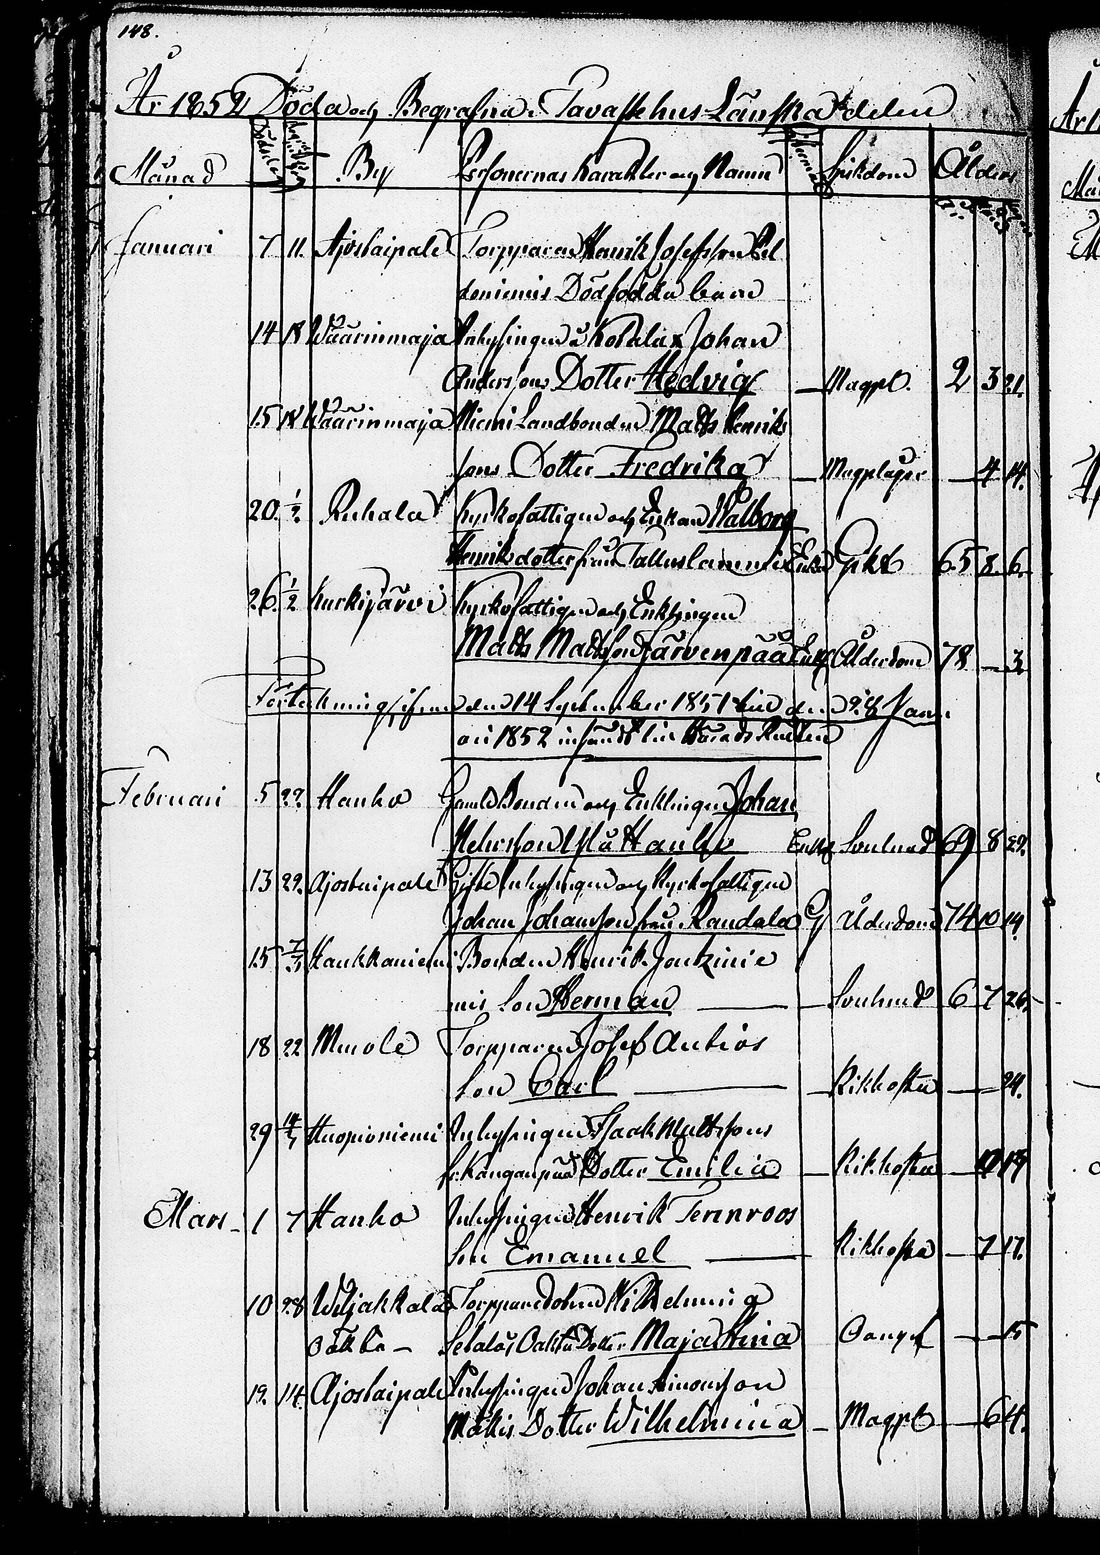 148.
År 1852 Döda och Begrafna i Tavastehus Länska delen
Månad By Personernas Karakter och Namn Sjukdom Ålder
Januari 7 11. Ajostaipale Torpparen Henrik Josefsson
Dödfödda barn
14 18 Waarinmaja Inhysingen å Johan
Anderssons Dotter Hedvig — Magpl. 2 3 21.
15 18 Waarinmaja Niemi Landbonden Matts Henriks
sons Dotter Fredrika — Magplågor — 4 14.
20. 1/2. Ruhala Kyrkofattigen och Enkan Walborg
Henriksdotter från Enka Gikt 65 8 6.
26. 1/2 Kurkijärvi Kyrkofattigen och Enklingen
Matts Mattsson Järvenpää Enkl Ålderdom 78 — 3.
Förtekning ifrån den 14 September 1851 till den 28 Janu
ari 1852 insändt till Härads Rätten
Februari 5 22. Hanho Gamle Bonden och Enklingen Johan
Hanho Enkl 69 8 29.
13 22. Ajostaipale Gifte Inhysingen och Kyrkofattigen
Johan Johansson från Randala G Ålderdom 74 10 19.
15 7/3 Kaukkaniemi Bonden Henrik
mis Son Herman — — 6 7 26.
18 22 Murole Torpparen Josef Anttos
Son Carl — Kikhosta — 24.
29 14/3 Kuoponiemi Inhysingen Isaak Mattssons
fr. Kangaspää Dotter Emilia — Kikhosta
Mars — 1 7 Hanho Inhysingen Henrik Ternroos
Son Emanuel — Kikhosta — 7 17.
10 28 Wiljakkala Torpparedottren Wilhelmina
Dotter Maja Stina — 15
19. 14. Ajostaipale Inhysingen Johan Simonsson
Mäkis Dotter Wilhelmina — Magpl — 6 4.